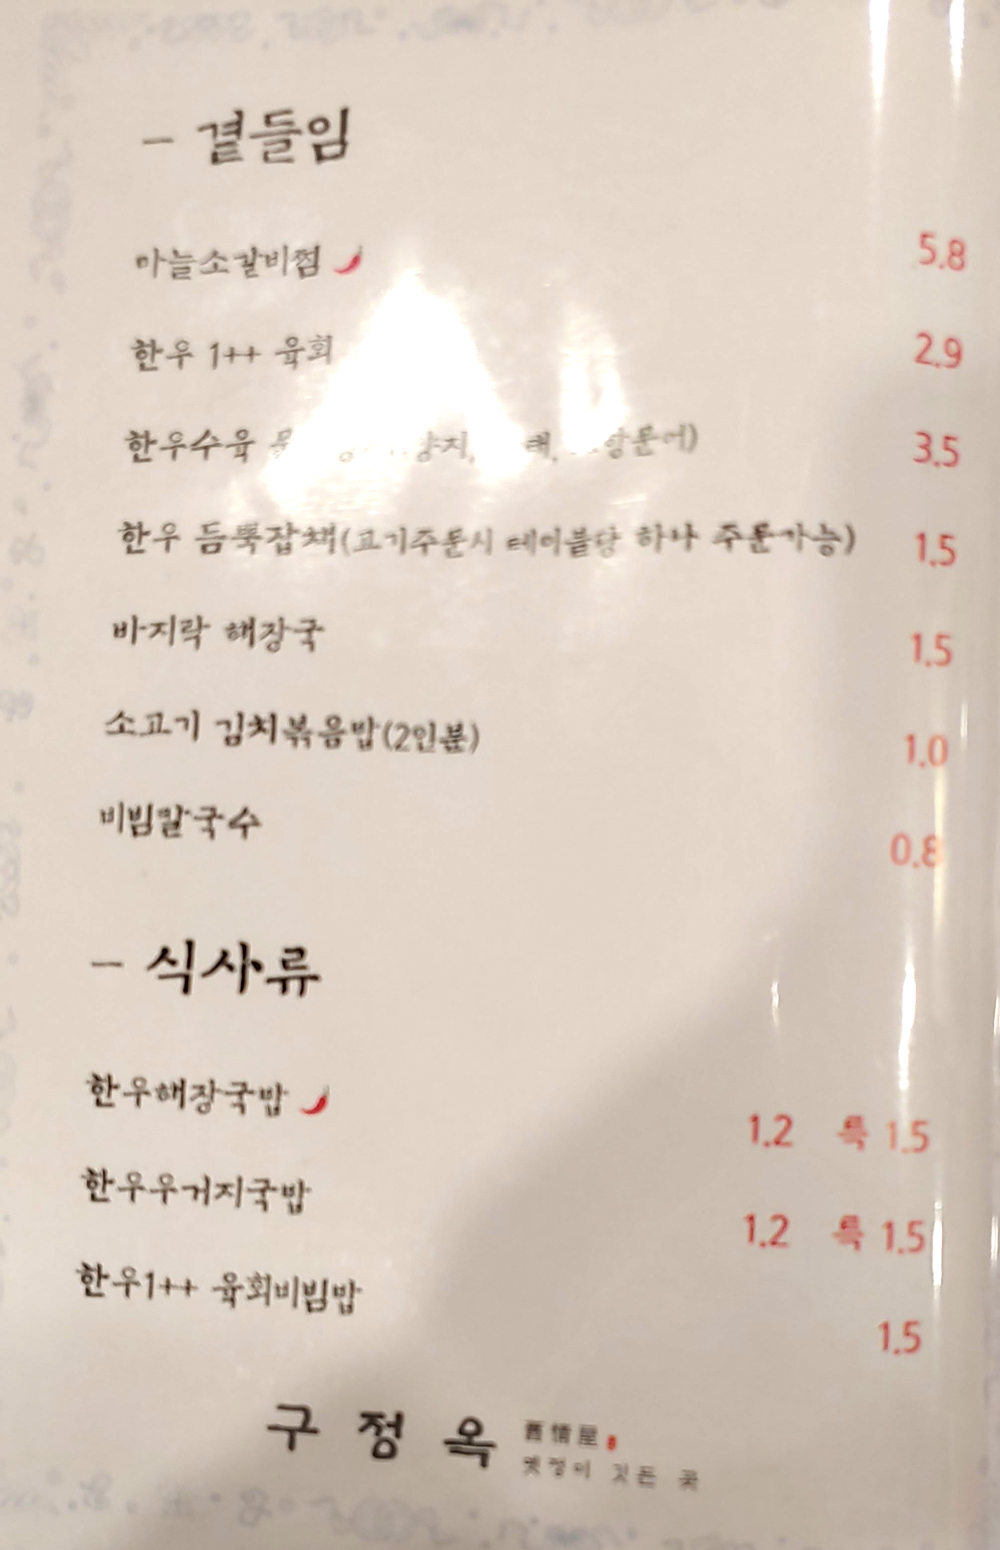 - 곁들임
마늘소갈비찜 5.8
한우 1++ 육회 2.9
한우수육 3.5
한우 듬뿍잡채(고기주문시 테이블당 하나 주문가능) 1.5
바지락 해장국 1.5
소고기 김치볶음밥(2인분) 1.0
비빔말국수 0.8
- 식사류
한우해장국밥 1.2 특 1.5
한우우거지국밥 1.2 특 1.5
한우1++ 육회비빔밥 1.5
구정옥 舊情屋
옛정이 깃든 곳